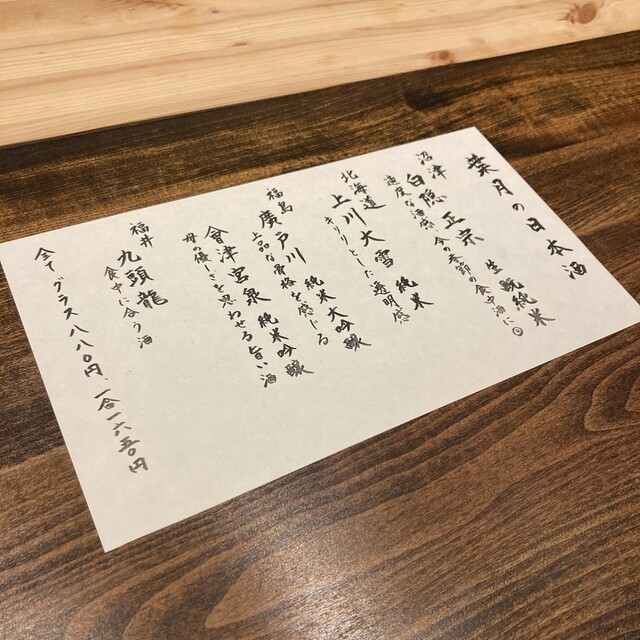 葉月の日本酒
沼津
白隠正宗 生酛純米
適度な酒感、今の季節の食中酒に◎
北海道
上川大雪 純米
キリリとした透明感
福島
廣戸川 純米大吟醸
上品な骨格を感じる
會津宮泉 純米吟醸
母の優しさを思わせる旨い酒
福井
九頭龍
食中に合う酒
全てグラス八八〇円、一合一六五〇円